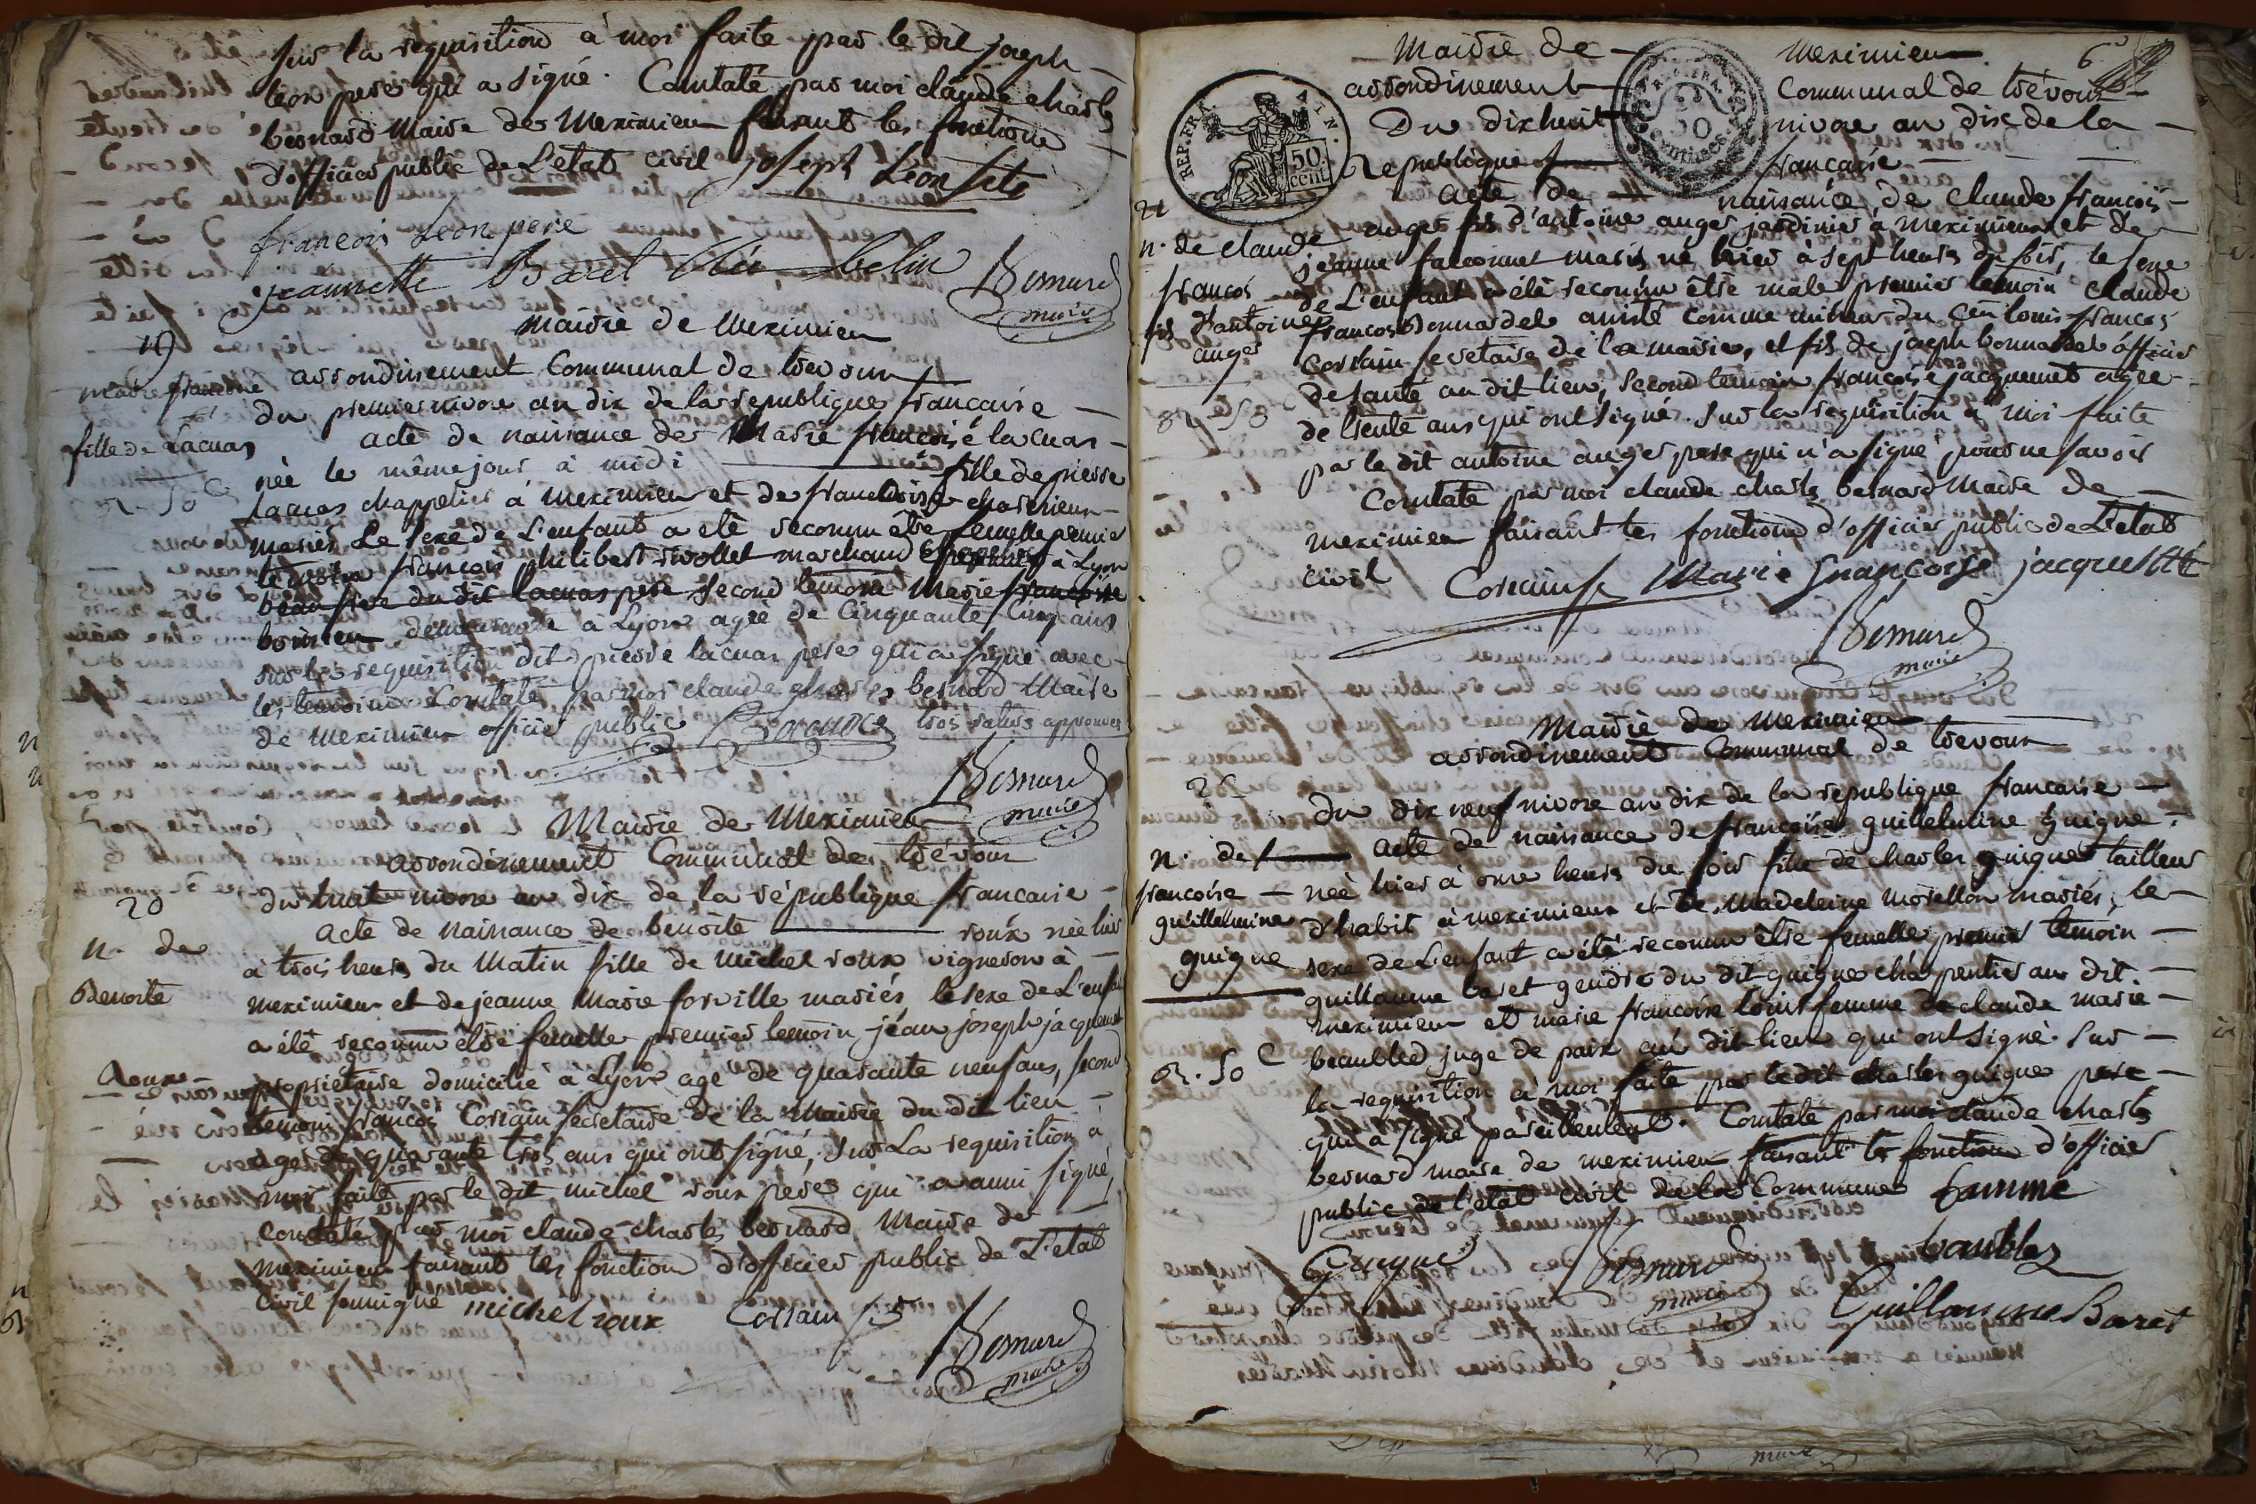 sur la requisition à moi faite par le dit joseph
leon pere qui a signé. Constaté par moi claude charles
bernard Maire de Meximieu faisant les fonctions
d'officier public de L'etat civil joseph Leon fils
francois Leon pere
jeannette Bael
Bernard
maire
Mairie de Meximieu
19
arrondissement Communal de trevoux
marie francoise
du premier nivose an dix de la republique francaise
acte de naissance de Marie francoise lacuas
fille de Lacuas
née le même jour à midi fille de pierre
lacuas chappelier à meximieu et de francoise
mariés Le sexe de L'enfant a eté reconnu être femelle premier
temoin francois philibert rivollet marchand à Lyon
beau frere du dit lacuas pere second temoin Marie francoise
demeurante a Lyon agée de Cinquante Cinq ans
sur la requisition dit pierre lacuas pere qui a signé avec
les temoins Constaté par moi claude charles bernard Maire
de meximieu officier public trois ratures approuvées
Bernard
maire
Mairie de Meximieu
arrondissement Communal de trévoux
du huit nivose an dix de la république francaise
20
acte de naissance de benoite roux née hier
n. de
à trois heures du Matin fille de Michel roux vigneron à
Benoite
meximieu et de jeanne Marie forville mariés le sexe de L'enfant
a été reconnu être femelle premier temoin jéan joseph jacquemet
Roux
propriétaire domicilié à Lyon agé de quarante neuf ans, second
temoin francois Corsain secretaire de la Mairie du dit lieu
agé de quarante trois ans qui ont signé, sur La requisition à
moi faite par le dit michel roux pere qui a aussi signé
constaté par moi claude charles bernard Maire de
meximieu faisant les fonction d'officier public de L'etat
civil soussigné michel roux Corsain
Bernard
maire
Mairie de Meximieu
6
arrondissement Communal de trévoux
Du dix huit nivose an dix de la
Republique francaise
REP. FRA. AIN.
50 cent.
acte de naissance de claude francois
21
auger fils d'antoine auger jardinier à meximieu et de
n. de claude
jeanne falconnet mariés né hier à sept heures du soir, le sexe
francois
de L'enfant a été reconnu être male premier temoin claude
fils d'antoine
francois Bonnardel assisté comme mineur du cen louis francois
auger
Corsain secretaire de la mairie, et fils de joseph bonnardel officier
de santé au dit lieu, second temoin francoise jacquemet agée
de trente ans qui ont signé. Sur la requisition à moi faite
par le dit antoine auger pere qui n'a signé pour ne savoir
Constaté par moi claude charles bernard Maire de
meximieu faisant les fonctions d'officier public de L'etat
civil Corsain Marie françoise jacquemet
Bernard
maire
Mairie de Meximieu
arrondissement Communal de trevoux
du dix neuf nivose an dix de la republique francaise
n. de
acte de naissance de francoise guillelmine guigue
francoise
née hier à onze heures du soir fille de charles guigue tailleur
guillelmine
d'habit à meximieu et de Madeleine morellon mariés, le
guigue
sexe de L'enfant a été reconnu être femelle premier temoin
guillaume baret gendre du dit guigue charpentier au dit
meximieu et marie francoise femme de claude marie
beaublez juge de paix au dit lieu qui ont signé. Sur
la requisition à moi faite par le dit charles guigue pere
qui a signé pareillement. Constaté par moi claude charles
bernard maire de meximieu faisant les fonctions d'officier
public de l'etat civil de la Commune
famme
baublez
Guigue
Bernard
maire
Guillaume Baret